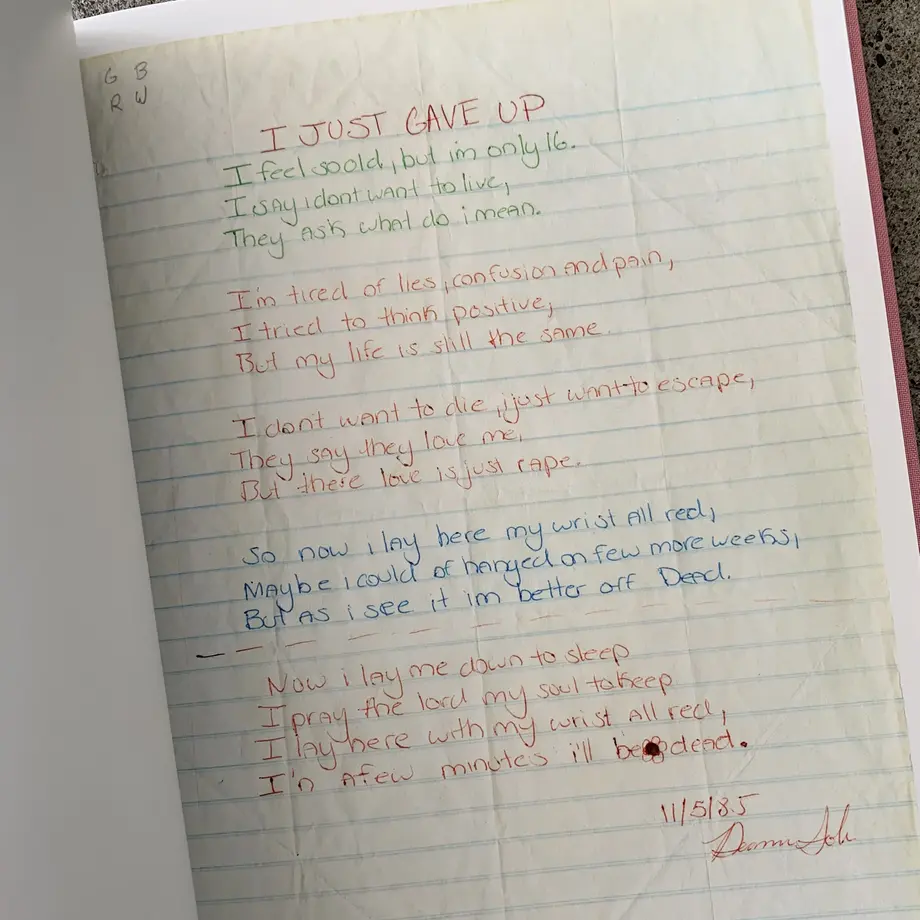 G B
R W
I JUST GAVE UP
I feel so old, but im only 16.
I say i dont want to live,
They ask what do i mean.
I'm tired of lies, confusion and pain,
I tried to think positive,
But my life is still the same.
I dont want to die, i just want to escape,
They say they love me,
But there love is just rape.
So now i lay here my wrist All red,
Maybe i could of hanged on few more weeks,
But As i see it im better off Dead.
Now i lay me down to sleep
I pray the lord my soul to keep
I lay here with my wrist All red,
I'n A few minutes i'll be dead.
11/5/85